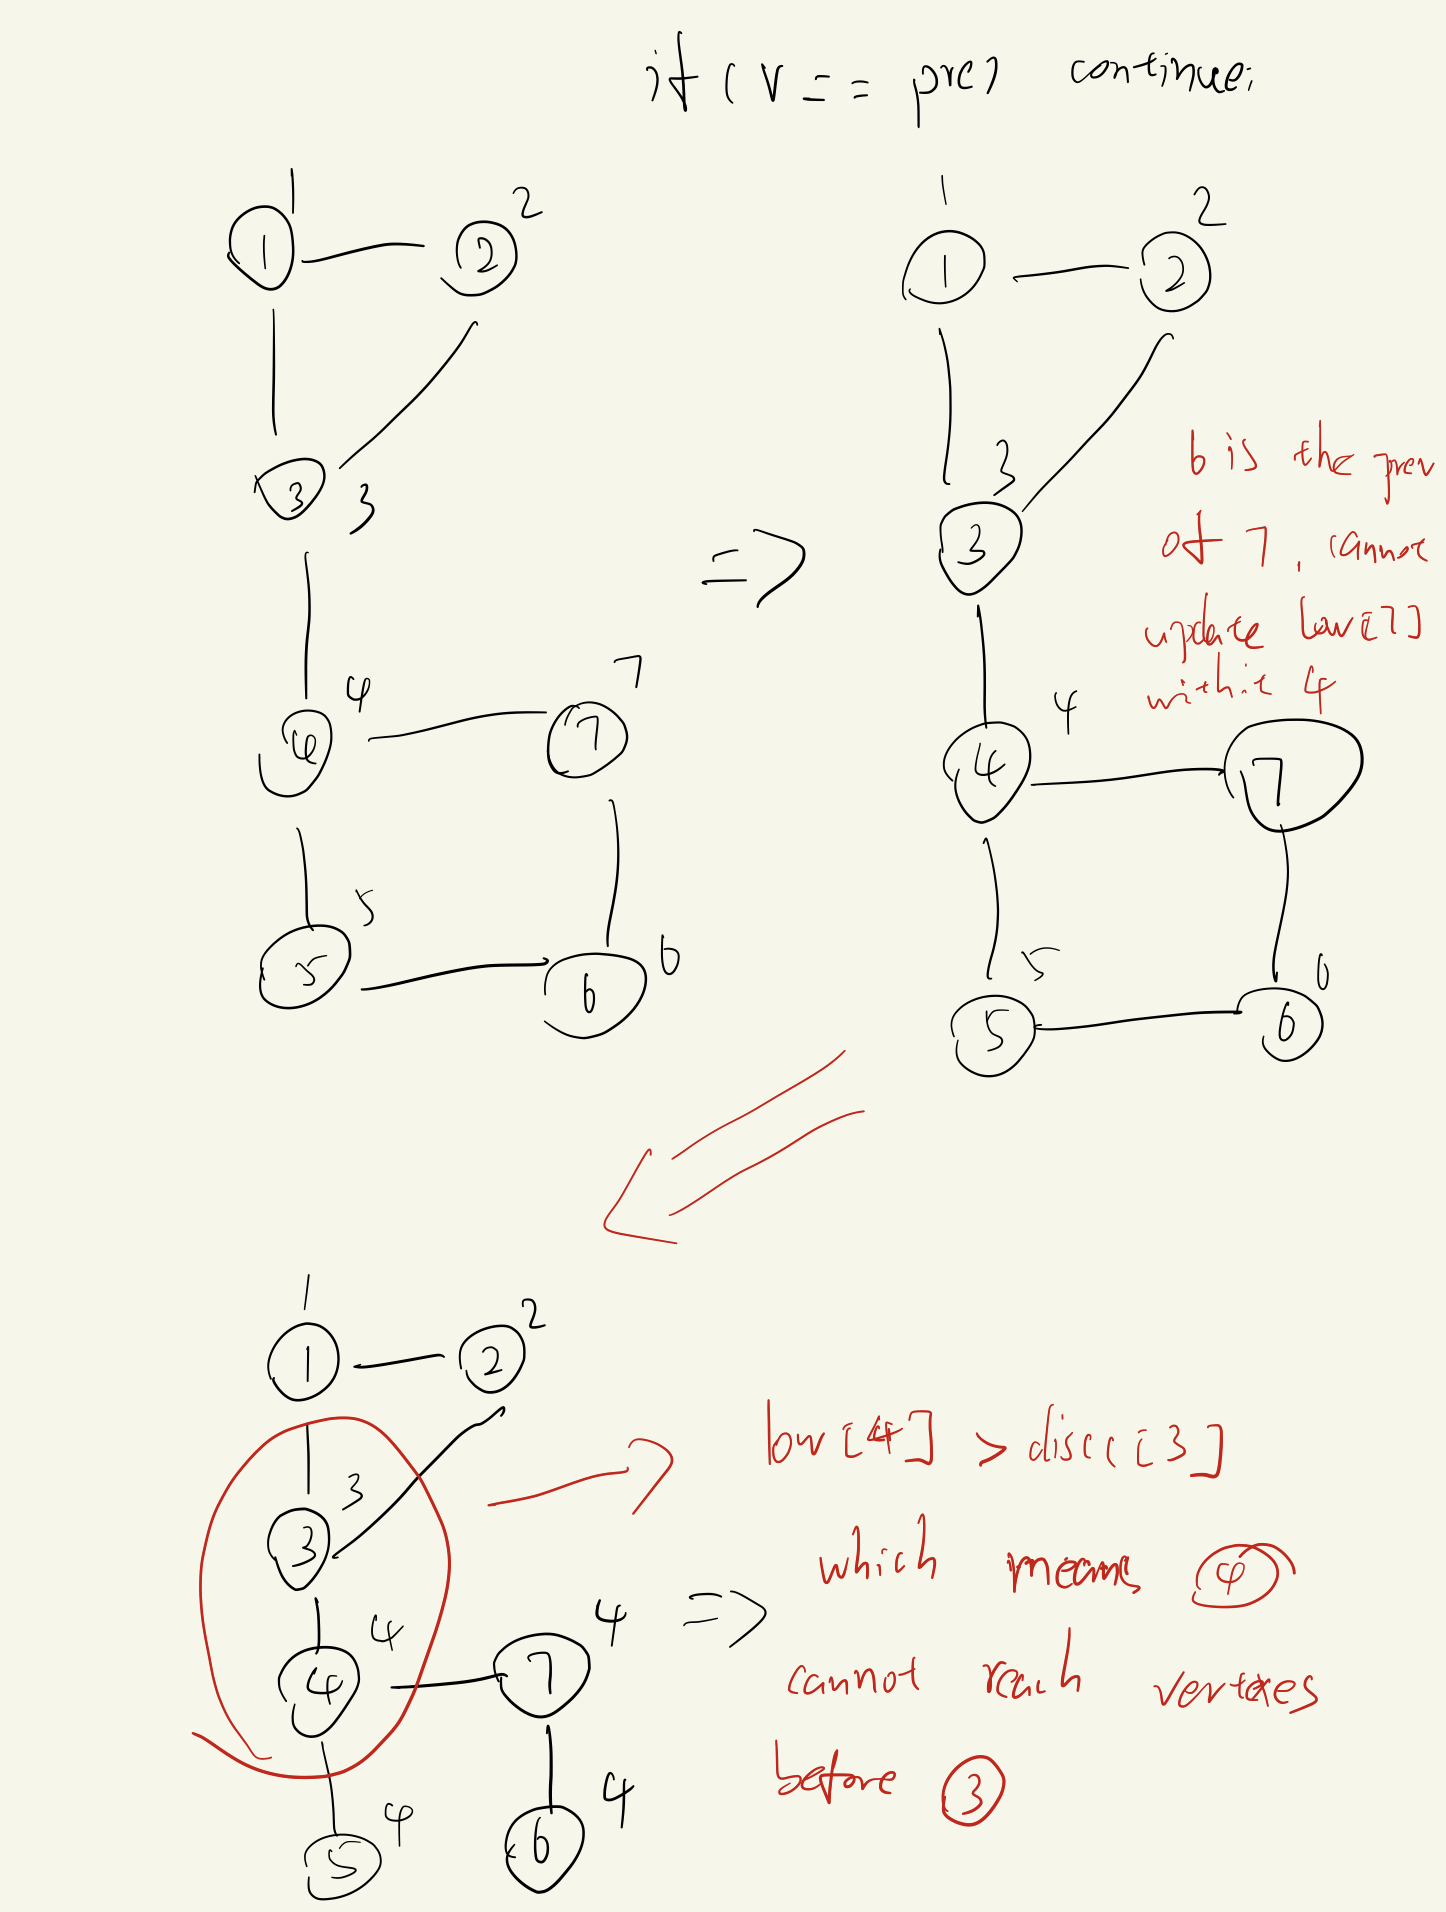 if ( v == pre) continue;
1
2
1
2
3
3
4
4
7
7
5
5
6
6
=>
1
2
1
2
3
3
4
4
7
5
5
6
6
6 is the prev
of 7, cannot
update low[7]
with it 4
1
2
1
2
3
3
4
4
4
7
4
5
4
6
low[4] > disc[3]
=> which means 4
cannot reach vertexes
before 3